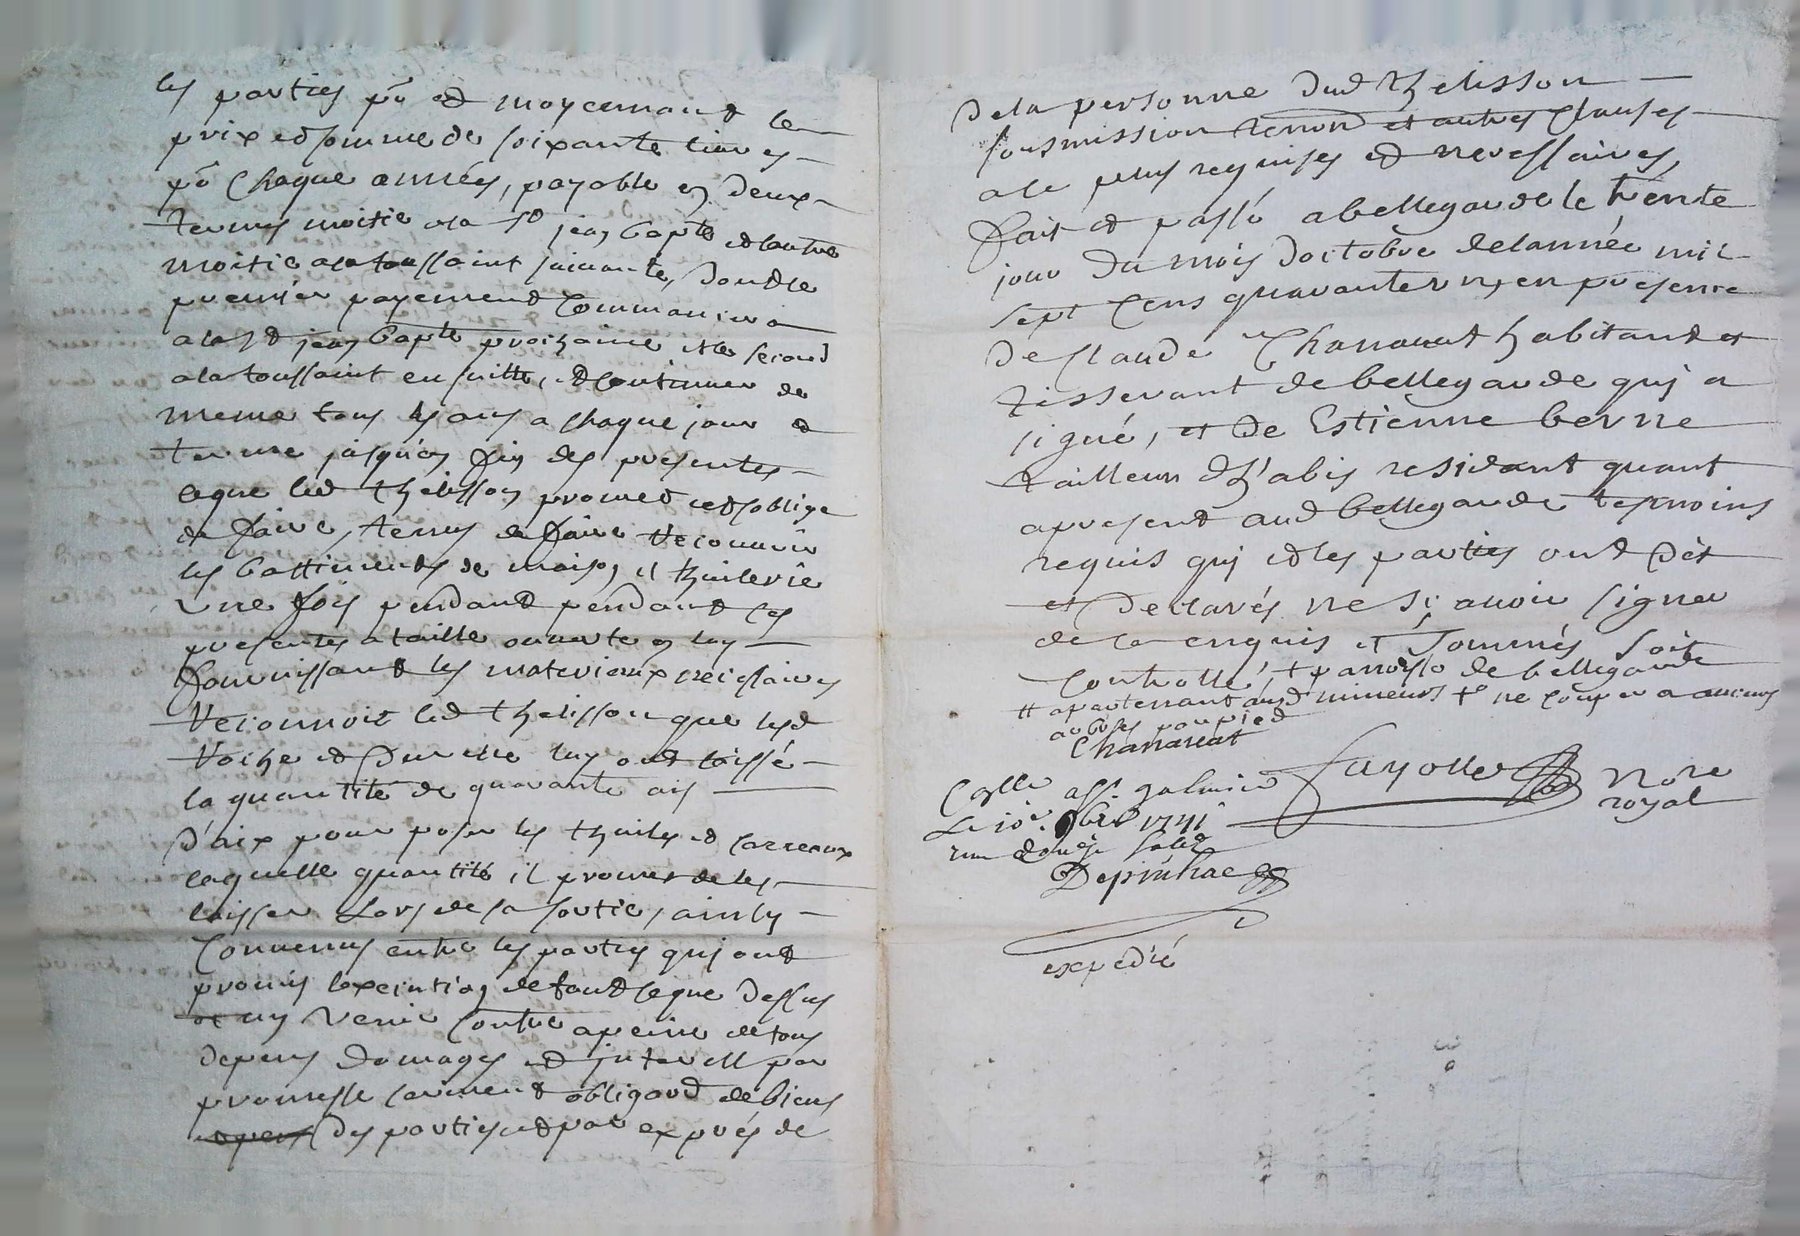 les parties po et moyennant le
prix et somme de soixante livres
po chaque années, payable en deux
termes moitie a la St jean bapte et lautre
moitie a la toussaint suivante, dont le
premier payement commancera
a la St jean bapte prochaine et le second
a la toussaint en suitte, et continuer de
meme tous les ans a chaque jour et
terme jusqu'en fin des presentes
ce que led thelisson promet et soblige
de faire, tenus de faire recouvrir
les battiments de maison et thuilerie
une fois pendant pendant les
presentes a taille ouverte en luy
fournissant les materieaux neicessaires
Reconnoit led thelisson que lesd
et luy ont laissé
la quantité de quarante ais
d'aix pour poser les thuiles et carreaux
laquelle quantité il promet de les
laisser Lors de sa sortie, ainsy
convenus entre les parties qui ont
promis lexecution de tout ce que dessus
et ny venir contre a peine de tous
depens domages et interest par
promesse serment obligaon de biens
des parties et par exprés de
de la personne dud thelisson
sousmission renon et autres clauses
a ce plus requises et necessaires,
fait et passé a bellegarde le trente
jour du mois doctobre de lannée mil
sept cens quarante un, en presence
de Claude Chanareat habitant et
tisserant de bellegarde qui a
signé, et de Estienne berne
tailleur d'habis residant quant
a present aud bellegarde tesmoins
requis qui et les parties ont dèt
et declarés ne sçavoir signer
de ce enquis et sommés soit
controllé, + parroisse de bellegarde
++ apartenant ausd mineurs +° ne couper aucuns
arbres par pied
Chanareat
Fayolle Nore
royal
Collé a St galmier
Le 10e 9bre 1741
Depinhac
expedié